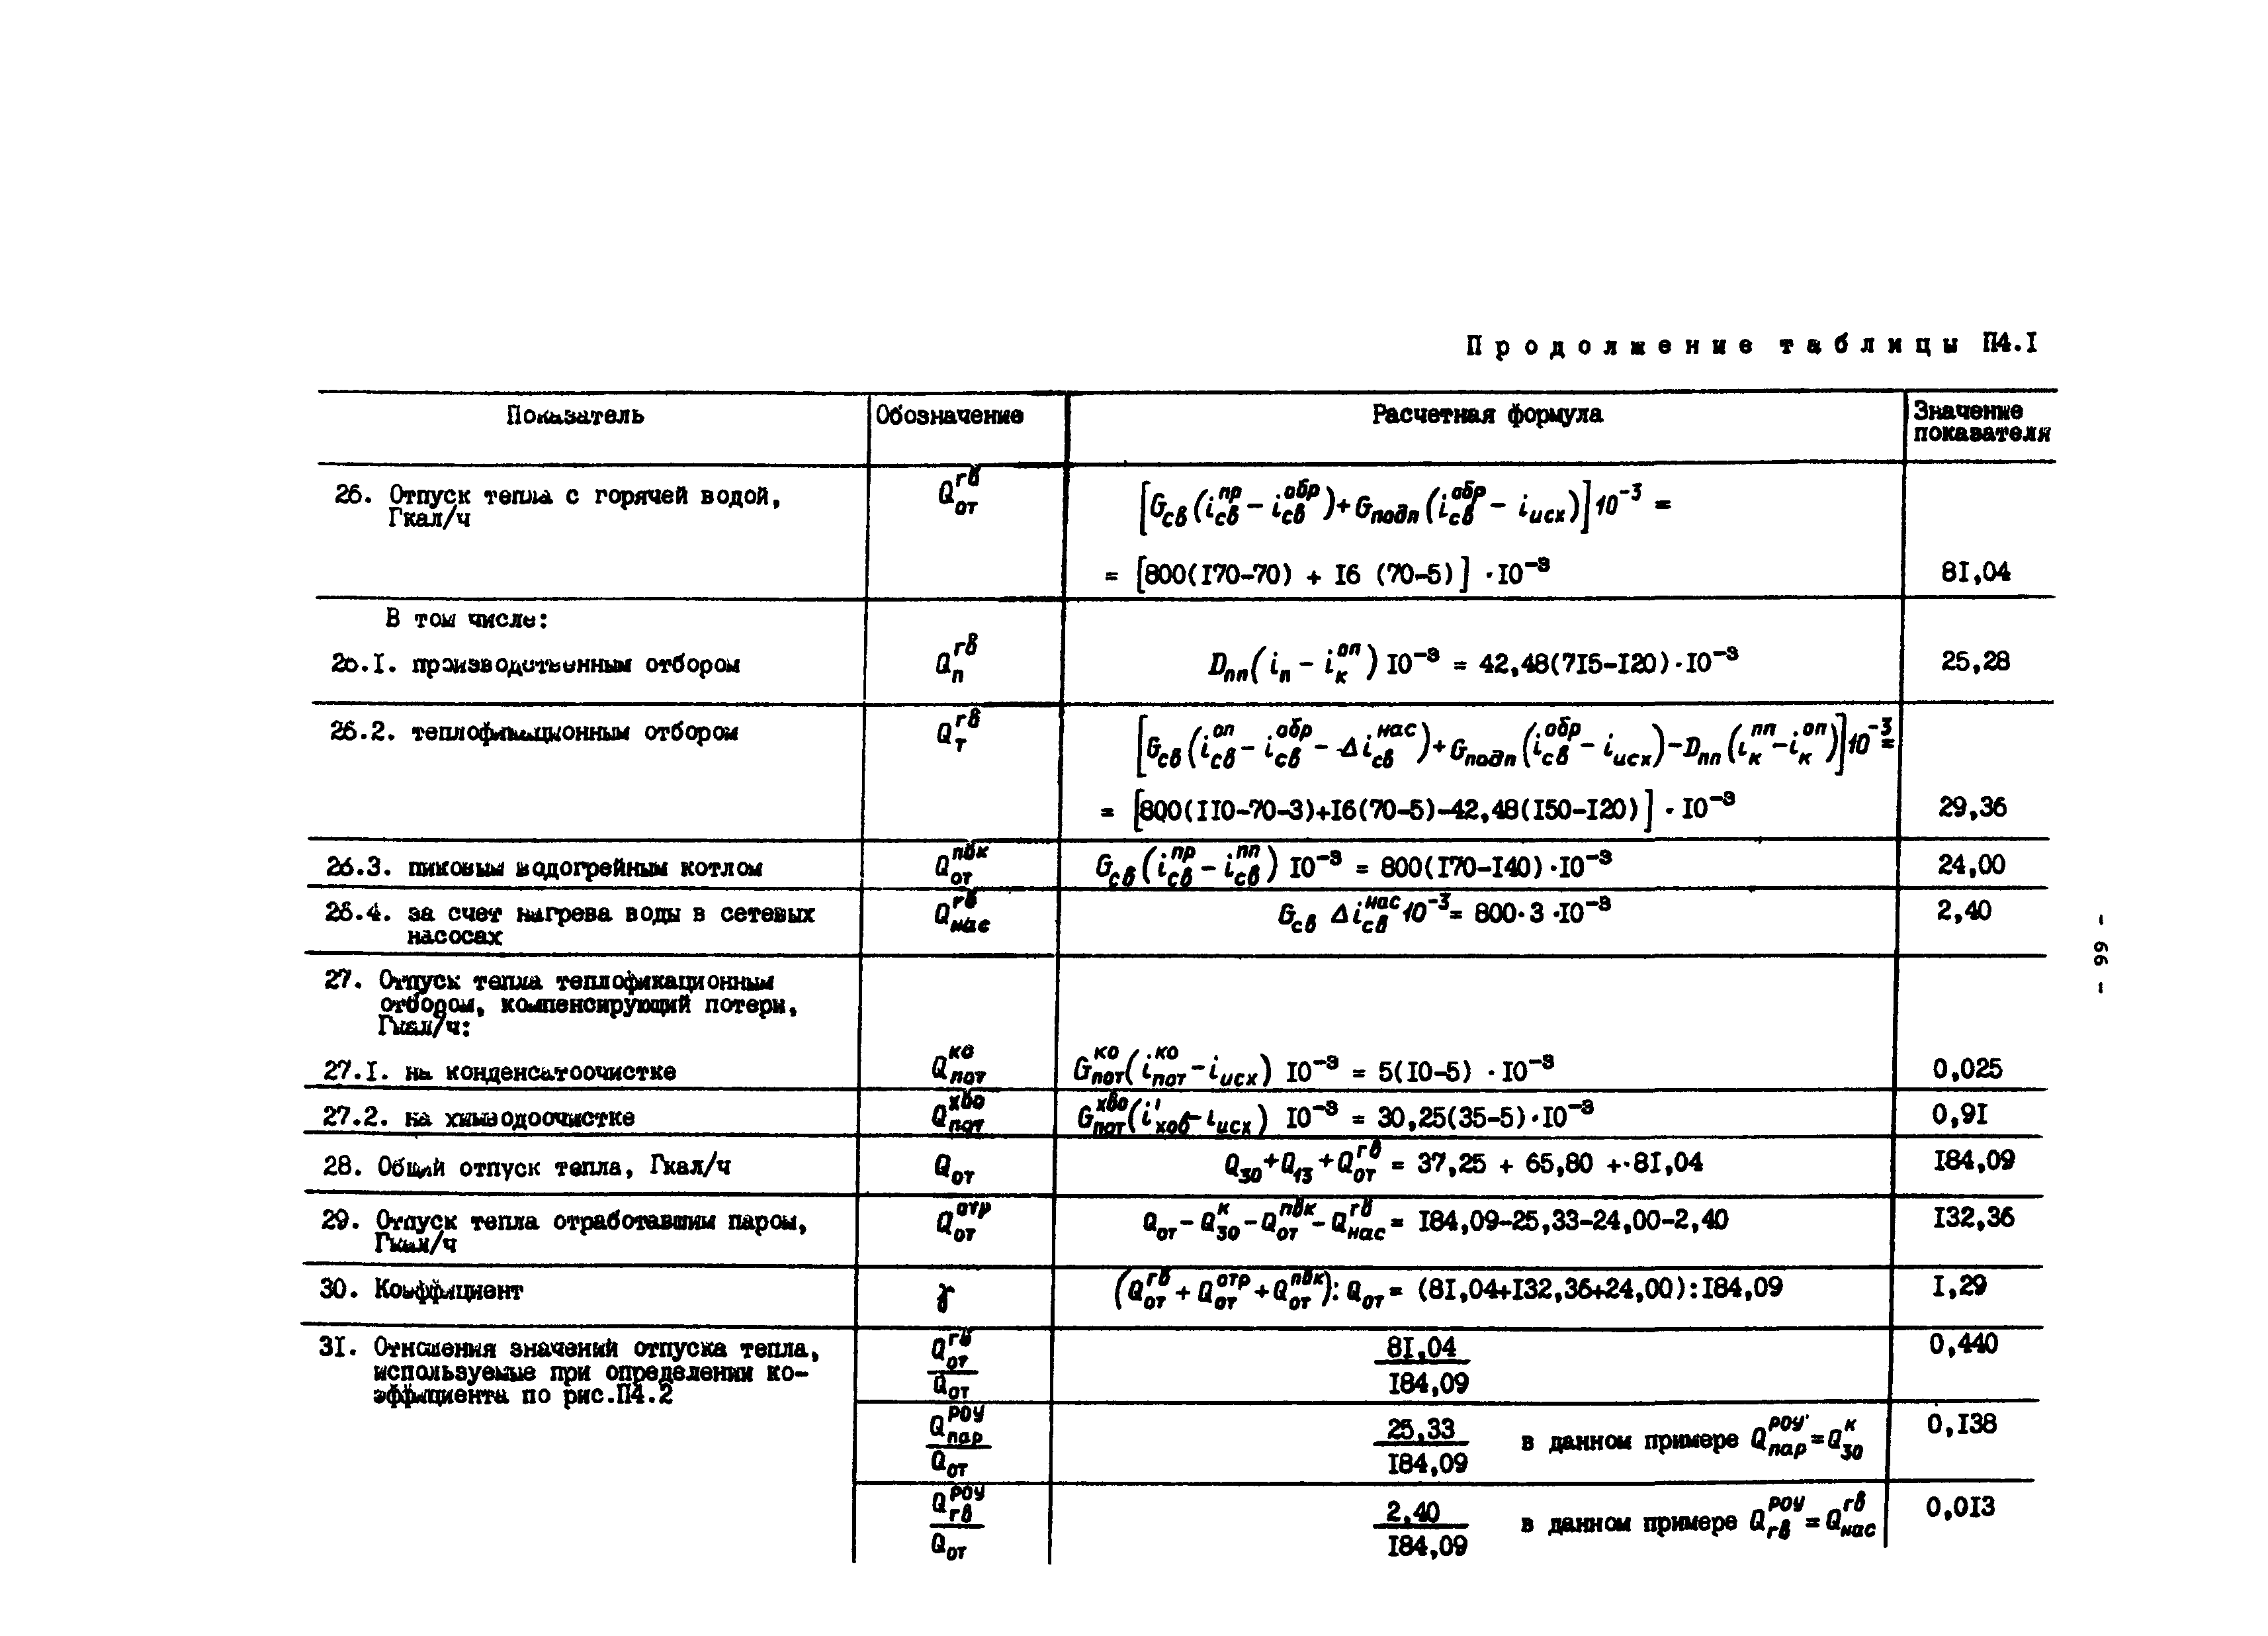 Продолжение таблицы П4.1
Показатель Обозначение Расчетная формула Значение показателя
26. Отпуск тепла с горячей водой, Q_от^гв [G_св(i_св^пр − i_св^обр)+G_подп(i_св^обр − i_исх)]10^-3 =
Гкал/ч
= [800(170-70) + 16 (70-5)] ·10^-3 81,04
В том числе:
26.1. производственным отбором Q_п^гв D_пп(i_п − i_к^оп)10^-3 = 42,48(715-120)·10^-3 25,28
26.2. теплофикационным отбором Q_т^гв [G_св(i_св^оп − i_св^обр − Δi_св^нас)+G_подп(i_св^обр − i_исх)−D_пп(i_к^пп − i_к^оп)]10^-3 =
= [800(110-70-3)+16(70-5)-42,48(150-120)] ·10^-3 29,36
26.3. пиковым водогрейным котлом Q_от^пвк G_св(i_св^пр − i_св^пп) 10^-3 = 800(170-140)·10^-3 24,00
26.4. за счет нагрева воды в сетевых Q_нас^гв G_св Δi_св^нас 10^-3 = 800·3·10^-3 2,40
насосах
27. Отпуск тепла теплофикационным
отбором, компенсирующий потери,
Гкал/ч:
27.1. на конденсатоочистке Q_пот^ко G_пот^ко(i_пот^ко − i_исх) 10^-3 = 5(10-5) ·10^-3 0,025
27.2. на химводоочистке Q_пот^хво G_пот^хво(i'_хов − i_исх) 10^-3 = 30,25(35-5)·10^-3 0,91
28. Общий отпуск тепла, Гкал/ч Q_от Q_30+Q_13+Q_от^гв = 37,25 + 65,80 + 81,04 184,09
29. Отпуск тепла отработавшим паром, Q_от^отр Q_от − Q_30^к − Q_от^пвк − Q_нас^гв = 184,09-25,33-24,00-2,40 132,36
Гкал/ч
30. Коэффициент γ (Q_от^гв + Q_от^отр + Q_от^пвк): Q_от = (81,04+132,36+24,00):184,09 1,29
31. Отношения значений отпуска тепла, Q_от^гв / Q_от 81,04 / 184,09 0,440
используемые при определении ко-
эффициента по рис.П4.2
Q_пар^РОУ / Q_от 25,33 / 184,09 в данном примере Q_пар^РОУ = Q_30^к 0,138
Q_гв^РОУ / Q_от 2,40 / 184,09 в данном примере Q_гв^РОУ = Q_нас^гв 0,013
- 66 -